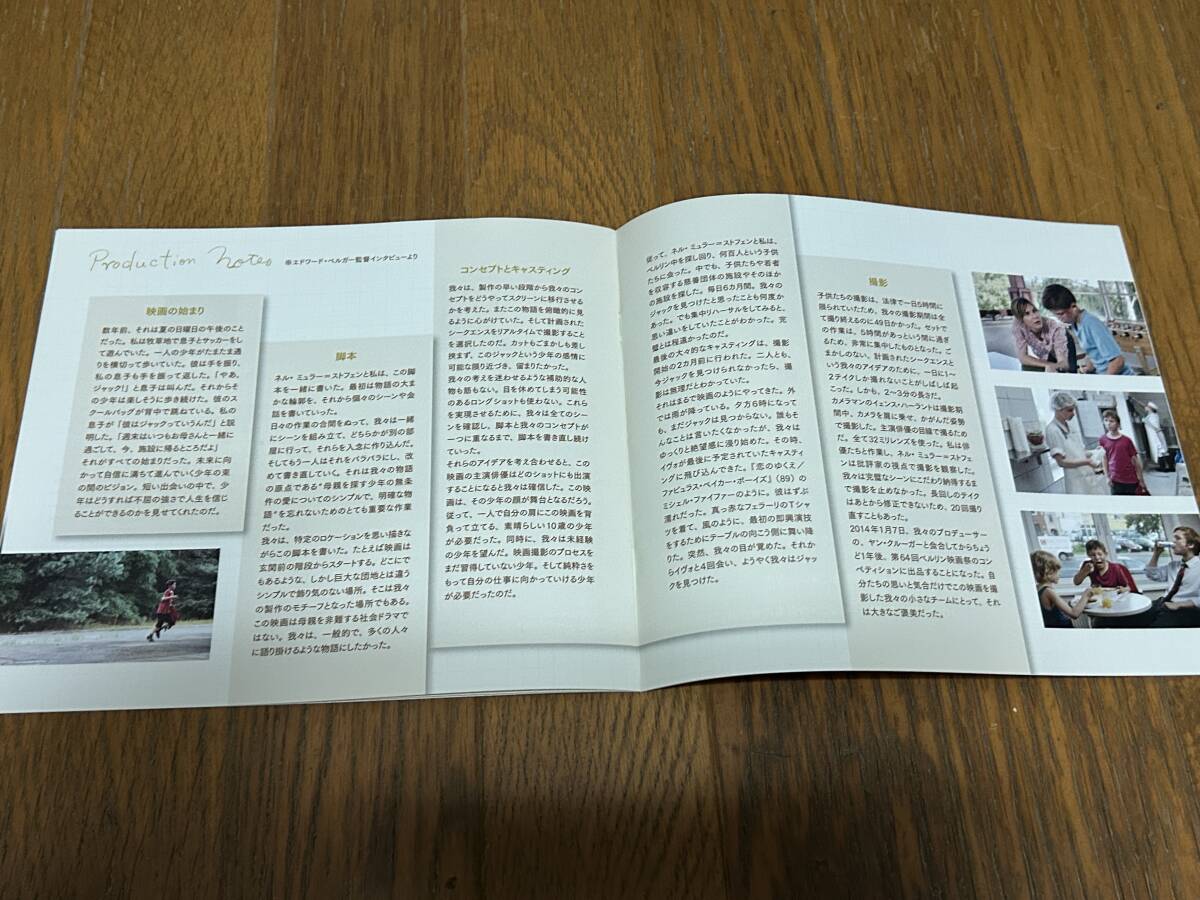 Production Notes
※エドワード・ベルガー監督インタビューより
映画の始まり
数年前、それは夏の日曜日の午後のこと
だった。私は牧草地で息子とサッカーをし
て遊んでいた。一人の少年がたまたま通
りを横切って歩いていた。彼は手を振り、
私の息子も手を振って返した。「やあ、
ジャック!」と息子は叫んだ。それからそ
の少年は楽しそうに歩き続けた。彼のス
クールバッグが背中で跳ねている。私の
息子が「彼はジャックっていうんだ」と説
明した。「週末はいつもお母さんと一緒に
過ごして、今、施設に帰るところだよ」
それがすべての始まりだった。未来に向
かって自信に満ちて進んでいく少年の束
の間のビジョン。短い出会いの中で、少
年はどうすれば不屈の強さで人生を信じ
ることができるのかを見せてくれたのだ。
脚本
ネル・ミュラー=ストフェンと私は、この脚
本を一緒に書いた。最初は物語の大ま
かな輪郭を、それから個々のシーンや会
話を書いていった。
日々の作業の合間をぬって、我々は一緒
にシーンを組み立て、どちらかが別の部
屋に行って、それらを入念に作り込んだ。
そしてもう一人はそれをバラバラにし、改
めて書き直していく。それは我々の物語
の原点である“母親を探す少年の無条
件の愛についてのシンプルで、明確な物
語”を忘れないためのとても重要な作業
だった。
我々は、特定のロケーションを思い描きな
がらこの脚本を書いた。たとえば映画は
玄関前の階段からスタートする。どこにで
もあるような、しかし巨大な団地とは違う
シンプルで飾り気のない場所。そこは我々
の製作のモチーフとなった場所でもある。
この映画は母親を非難する社会ドラマで
はない。我々は、一般的で、多くの人々
に語り掛けるような物語にしたかった。
コンセプトとキャスティング
我々は、製作の早い段階から我々のコン
セプトをどうやってスクリーンに移行させる
かを考えた。またこの物語を俯瞰的に見
るように心がけていた。そして計画された
シークエンスをリアルタイムで撮影すること
を選択したのだ。カットもごまかしも差し
挟まず、このジャックという少年の感情に
可能な限り近づき、留まりたかった。
我々の考えを迷わせるような補助的な人
物も語もない。目を休めてしまう可能性
のあるロングショットも使わない。これら
を実現させるために、我々は全てのシー
ンを確認し、脚本と我々のコンセプトが
一つに重なるまで、脚本を書き直し続け
ていった。
それらのアイデアを考え合わせると、この
映画の主演俳優はどのショットにも出演
することになると我々は確信した。この映
画は、その少年の顔が舞台となるだろう。
従って、一人で自分の肩にこの映画を背
負って立てる、素晴らしい10歳の少年
が必要だった。同時に、我々は未経験
の少年を望んだ。映画撮影のプロセスを
まだ習得していない少年。そして純粋さを
もって自分の仕事に向かっていける少年
が必要だったのだ。
従って、ネル・ミュラー=ストフェンと私は、
ベルリン中を探し回り、何百人という子供
たちに会った。中でも、子供たちや若者
を収容する慈善団体の施設やそのほか
の施設を探した。毎日6カ月間。我々の
ジャックを見つけたと思ったことも何度か
あった。でも集中リハーサルをしてみると、
思い違いをしていたことがわかった。完
璧とは程遠かったのだ。
最後の大々的なキャスティングは、撮影
開始の2カ月前に行われた。二人とも、
今ジャックを見つけられなかったら、撮
影は無理だとわかっていた。
それはまるで映画のようにやってきた。外
では雨が降っている。夕方6時になって
も、まだジャックは見つからない。誰もそ
んなことは言いたくなかったが、我々は
ゆっくりと絶望感に浸り始めた。その時、
イヴォが最後に予定されていたキャスティ
ングに飛び込んできた。『恋のゆくえ／
ファビュラス・ベイカー・ボーイズ』（89）の
ミシェル・ファイファーのように。彼はずぶ
濡れだった。真っ赤なフェラーリのTシャ
ツを着て、風のように、最初の即興演技
をするためにテーブルの向こう側に舞い降
りた。突然、我々の目が覚めた。それか
らイヴォと4回会い、ようやく我々はジャッ
クを見つけた。
撮影
子供たちの撮影は、法律で一日5時間に
限られていたため、我々の撮影期間は全
て撮り終えるのに49日かかった。セットで
の作業は、5時間があっという間に過ぎ
るため、非常に集中したものとなった。ご
まかしのない、計画されたシークエンスと
いう我々のアイデアのために、一日に1〜
2テイクしか撮れないことがしばしば起
こった。しかも、2〜3分の長さだ。
カメラマンのイェンス・ハーラントは撮影期
間中、カメラを肩に乗せ、かがんだ姿勢
で撮影した。主演俳優の目線で撮るため
だ。全て32ミリレンズを使った。私は俳
優たちと作業し、ネル・ミュラー=ストフェ
ンは批評家の視点で撮影を観察した。
我々は完璧なシーンにこだわり納得するま
で撮影を止めなかった。長回しのテイク
はあとから修正できないため、20回撮り
直すこともあった。
2014年1月7日、我々のプロデューサー
の、ヤン・クルーガーと会合してからちょう
ど1年後、第64回ベルリン映画祭のコン
ペティションに出品することになった。自
分たちの思いと気合だけでこの映画を撮
影した我々の小さなチームにとって、それ
は大きなご褒美だった。